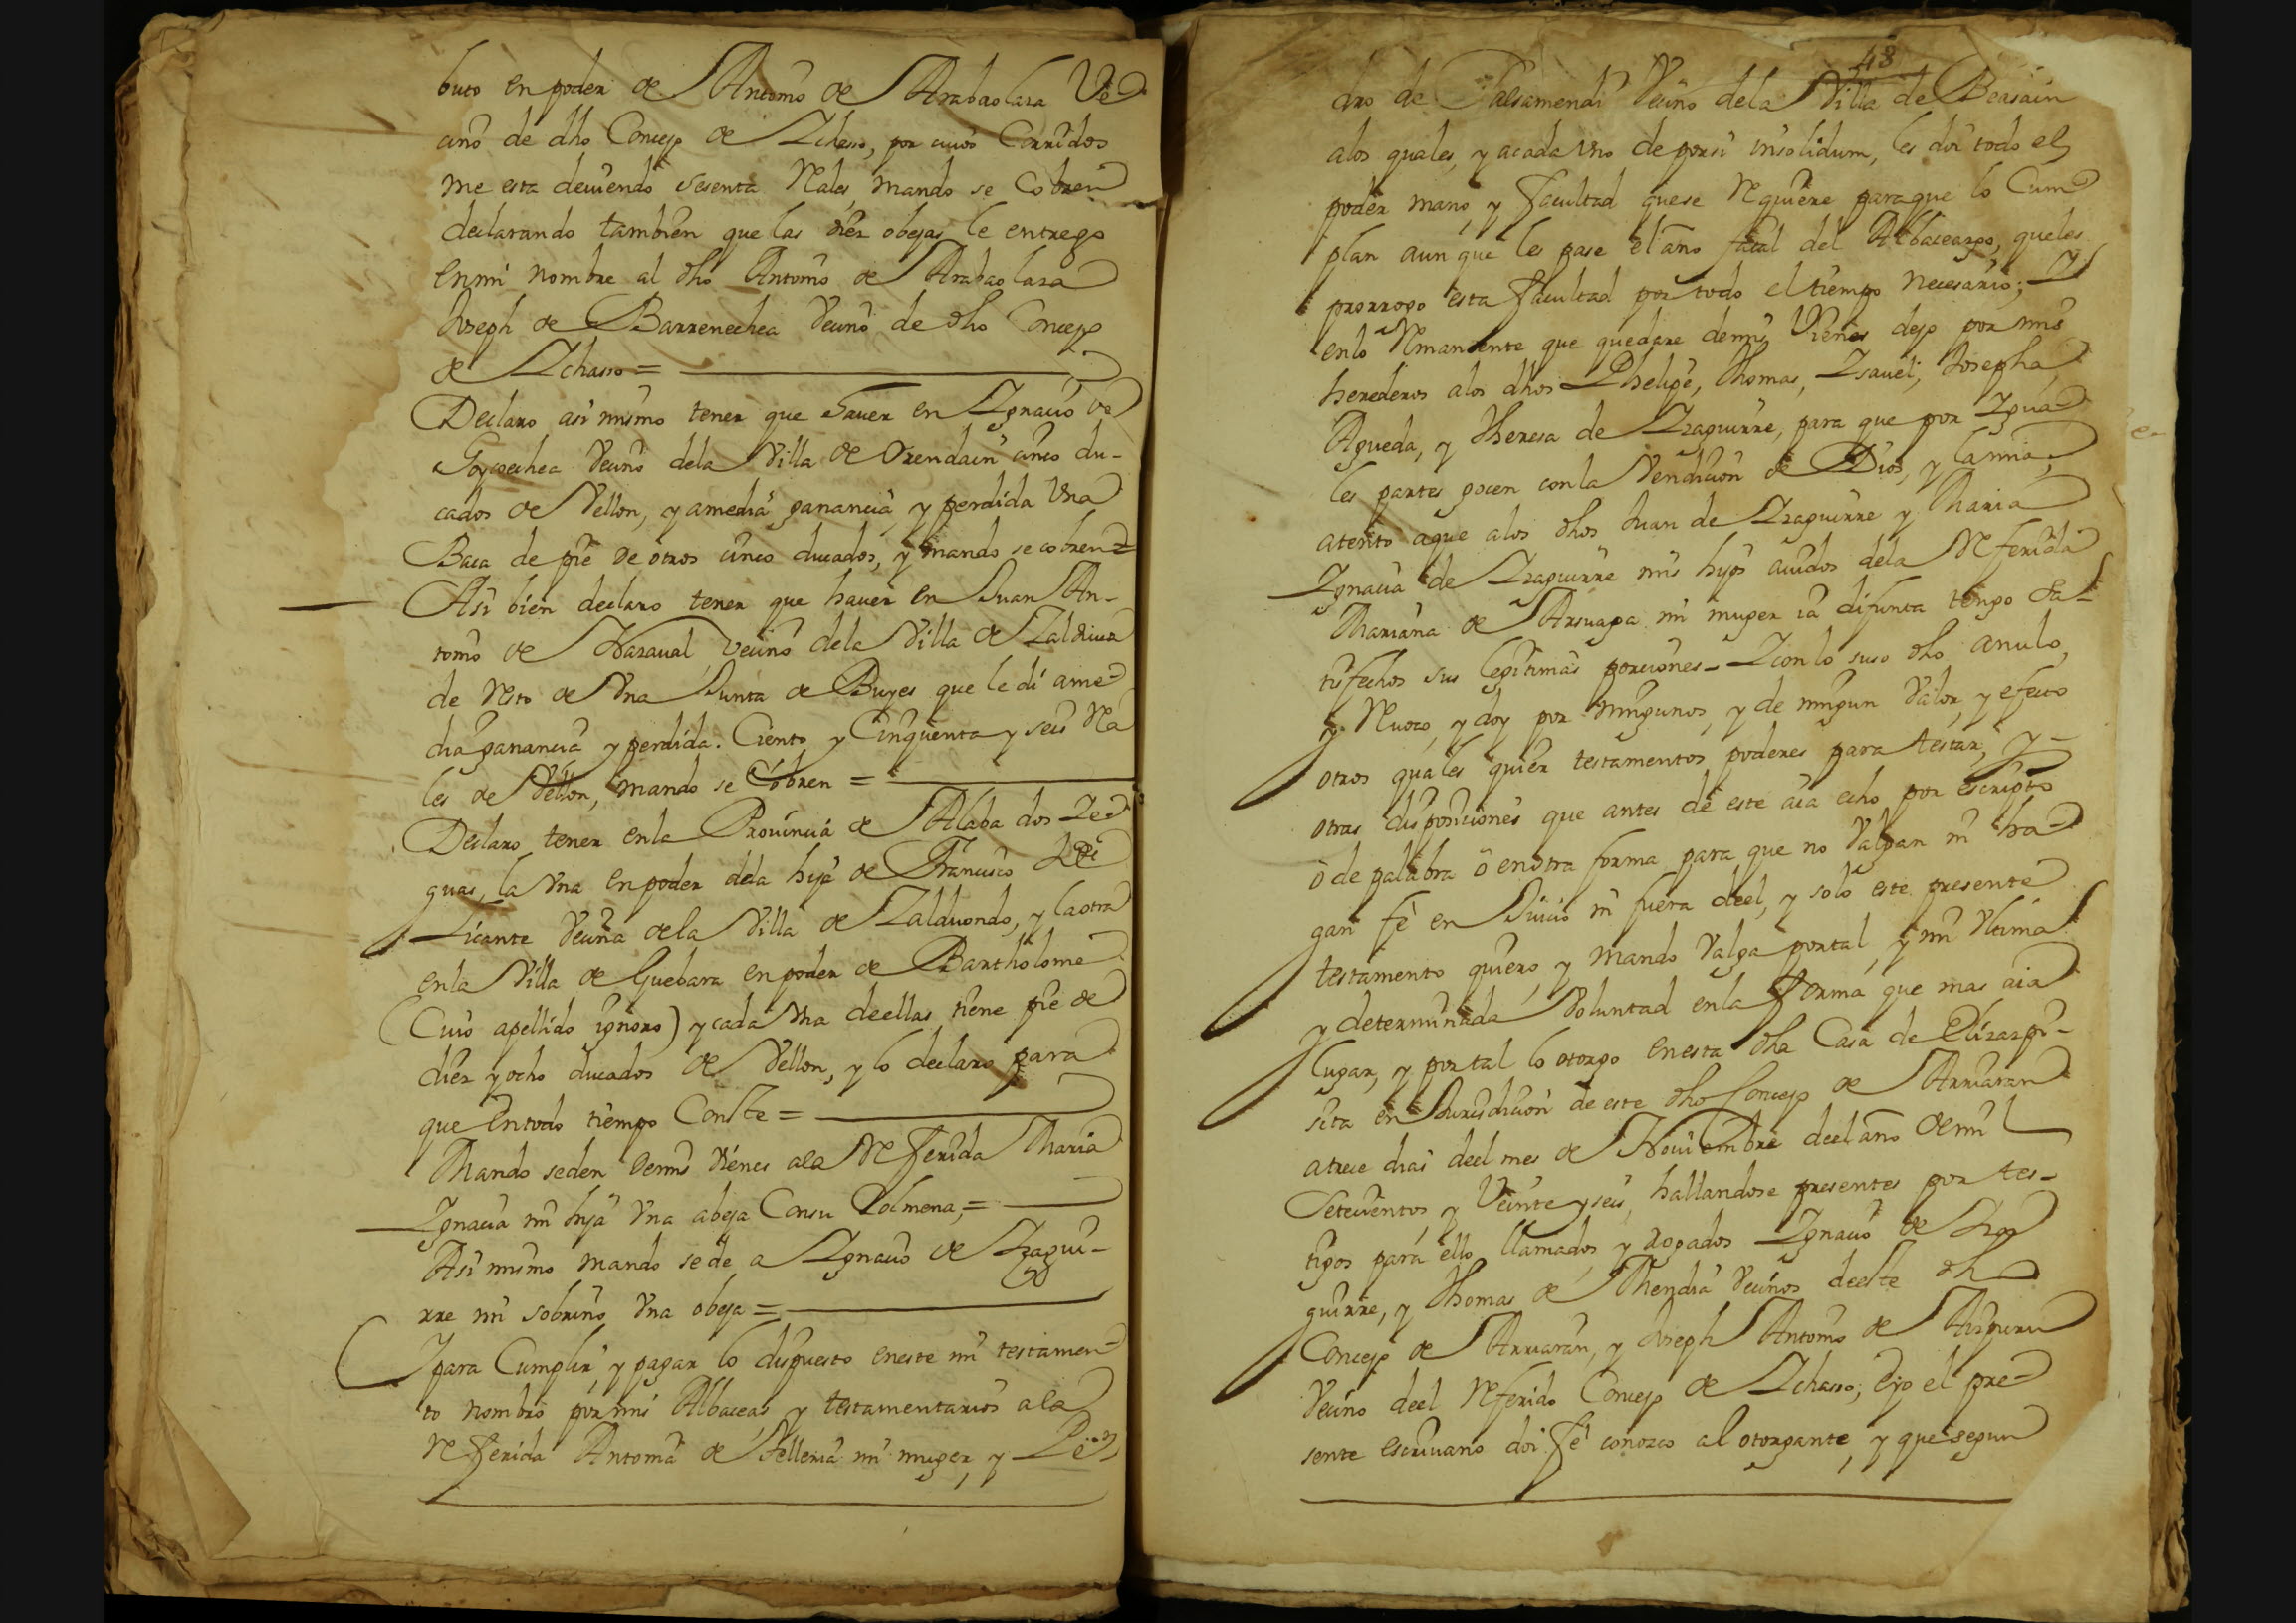 buto en poder de Antonio de Arabaolaza Ve
cino de dho Concejo de Ichasso, por cuios Corridos
me esta deuiendo sesenta Rales, mando se Cobren
declarando tambien que las diez obejas le entrego
en mi nombre al dho Antonio de Arabaolaza
Joseph de Barrenechea Vecino de dho Concejo
de Ichasso =
Declaro asi mismo tener que hauer en Ignacio de
Goycoechea Vecino dela Villa de Orendain cinco du-
cados de Vellon, y a media ganancia y perdida Una
Baca de pie de otros cinco ducados, y mando se cobren =
Asi bien declaro tener que hauer en Juan An-
tonio de Naraual vecino dela Villa de Zaldiuia
de Resto de Una Junta de Buyes que le di a me
dia ganancia y perdida. Ciento y Cinquenta y seis Rea
les de Vellon, mando se Cobren =
Declaro tener enla Prouincia de Alaba dos Ye
guas, la Una en poder dela hija de Francisco
Licante Vecina dela Villa de Zalduondo, y la otra
enla Villa de Guebara en poder de Bartholome
(Cuio apellido ignoro) y cada Una de ellas tiene pie de
diez y ocho ducados de Vellon, y lo declaro para
que entodo tiempo Conste =
Mando se den de mis vienes ala Referida Maria
Ignacia mi hija Una abeja Con su Colmena, =
Asi mismo mando se de a Ignacio de Izagui-
rre mi sobrino Una obeja =
Y para Cumplir, y pagar lo dispuesto eneste mi testamen
to nombro por mis Albaceas y testamentarios ala
Referida Antonia de Telleria mi muger, y Pe
48
dro de Galsamendi Vecino dela Villa de Beasain
alos quales, y acada Uno de porsi insolidum, les doi todo el
poder mano, y facultad quese Requiere paraque lo Cum
plan aunque les pase el año fatal del Albaceazgo, queles
prorrogo esta facultad por todo el tiempo necesario; Y
enlo Remanente que quedare demis Vienes dejo por mis
herederos alos dhos Phelipe, Thomas, Isauel, Josepha
Agueda, y Theresa de Izaguirre, para que por Igua
les partes gocen conla Vendicion de Dios, y la mia,
atento aque alos dhos Juan de Izaguirre y Maria
Ignacia de Izaguirre mis hijos auidos dela Referida
Mariana de Arsuaga mi muger ia difunta tengo Sa-
tisfechos sus legitimas porciones - Y con lo suso dho anulo,
y Reuoco, y doy por ningunos, y de ningun Valor, y efecto
otros quales quier testamentos poderes para testar, y
otras disposiciones que antes de este aia echo por escripto
ò de palabra ò en otra forma para que no Valgan ni ha
gan fè en Juicio ni fuera deel, y solo este presente
testamento quiero, y mando Valga portal, y mi Ultima
y determinada Voluntad enla forma que mas aia
lugar, y por tal lo otorgo enesta dha Casa de Elizazpi-
sita en Jurisdicion de este dho Concejo de Arriaran
atrece dias deel mes de Nouiembre deel año de mil
Setecientos, y Veinte y seis, hallandose presentes por tes-
tigos para ello llamados, y rogados Ignacio de Iza
guirre, y Thomas de Mendia Vecinos deeste dho
Concejo de Arriaran, y Joseph Antonio de Aizpuru
Vecino deel Referido Concejo de Ichasso; E yo el pre
sente escriuano doi fè conozco al otorgante, y que segun